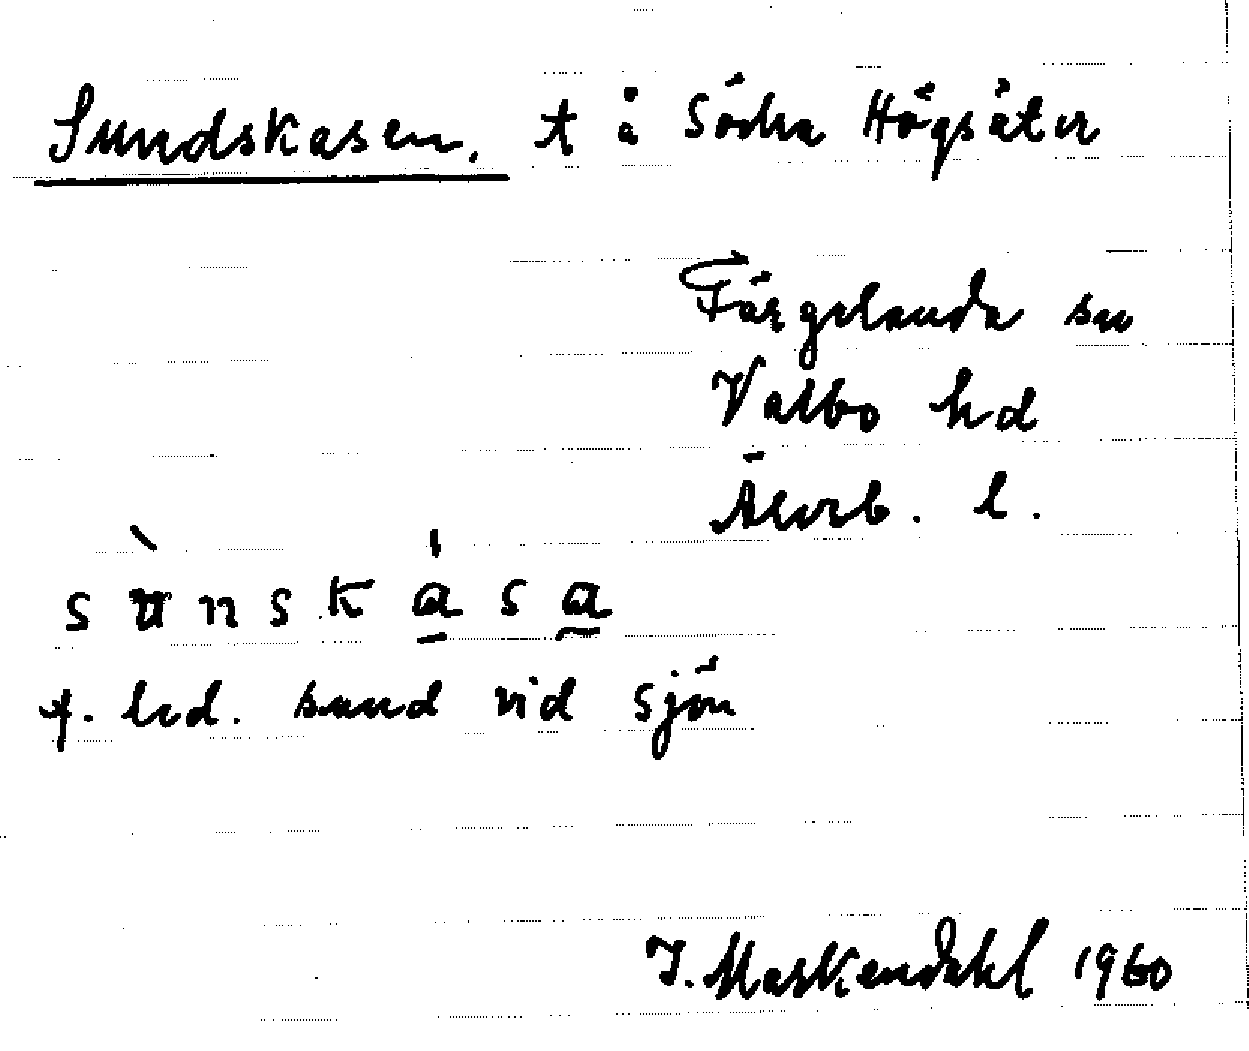 Sundskasen, t å Södra Högsäter
Färgelanda sn
Valbo hd
Älvsb. l.
sùnskása
f. led. sund vid sjön
I. Maskendahl 1960